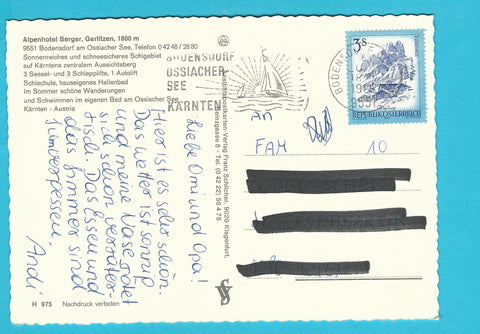 Alpenhotel Berger, Gerlitzen, 1800 m
9551 Bodensdorf am Ossiacher See, Telefon 0 42 46 / 28 80
Sonnenreiches und schneesicheres Schigebiet
auf Kärntens zentralem Aussichtsberg
3 Sessel- und 3 Schlepplifte, 1 Autolift
Schischule, hauseigenes Hallenbad
Im Sommer schöne Wanderungen
und Schwimmen im eigenen Bad am Ossiacher See
Kärnten - Austria
Liebe Omi und Opa!
Hier ist es sehr schön.
Das Wetter ist sonnig
und meine Nase rötet
sich schon verräter-
isch. Das Essen und
das Zimmer sind
Andi
H 975 Nachdruck verboten
Franz Schilcher, 9020 Klagenfurt,
8 - Tel. (0 42 22) 56 4 75
VS
BODENSDORF
OSSIACHER
SEE
KÄRNTEN
3s
REPUBLIK ÖSTERREICH
9551
An
FAM 10